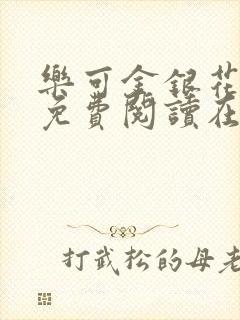 樂可金銀花
免費閱讀在
打武松的母老